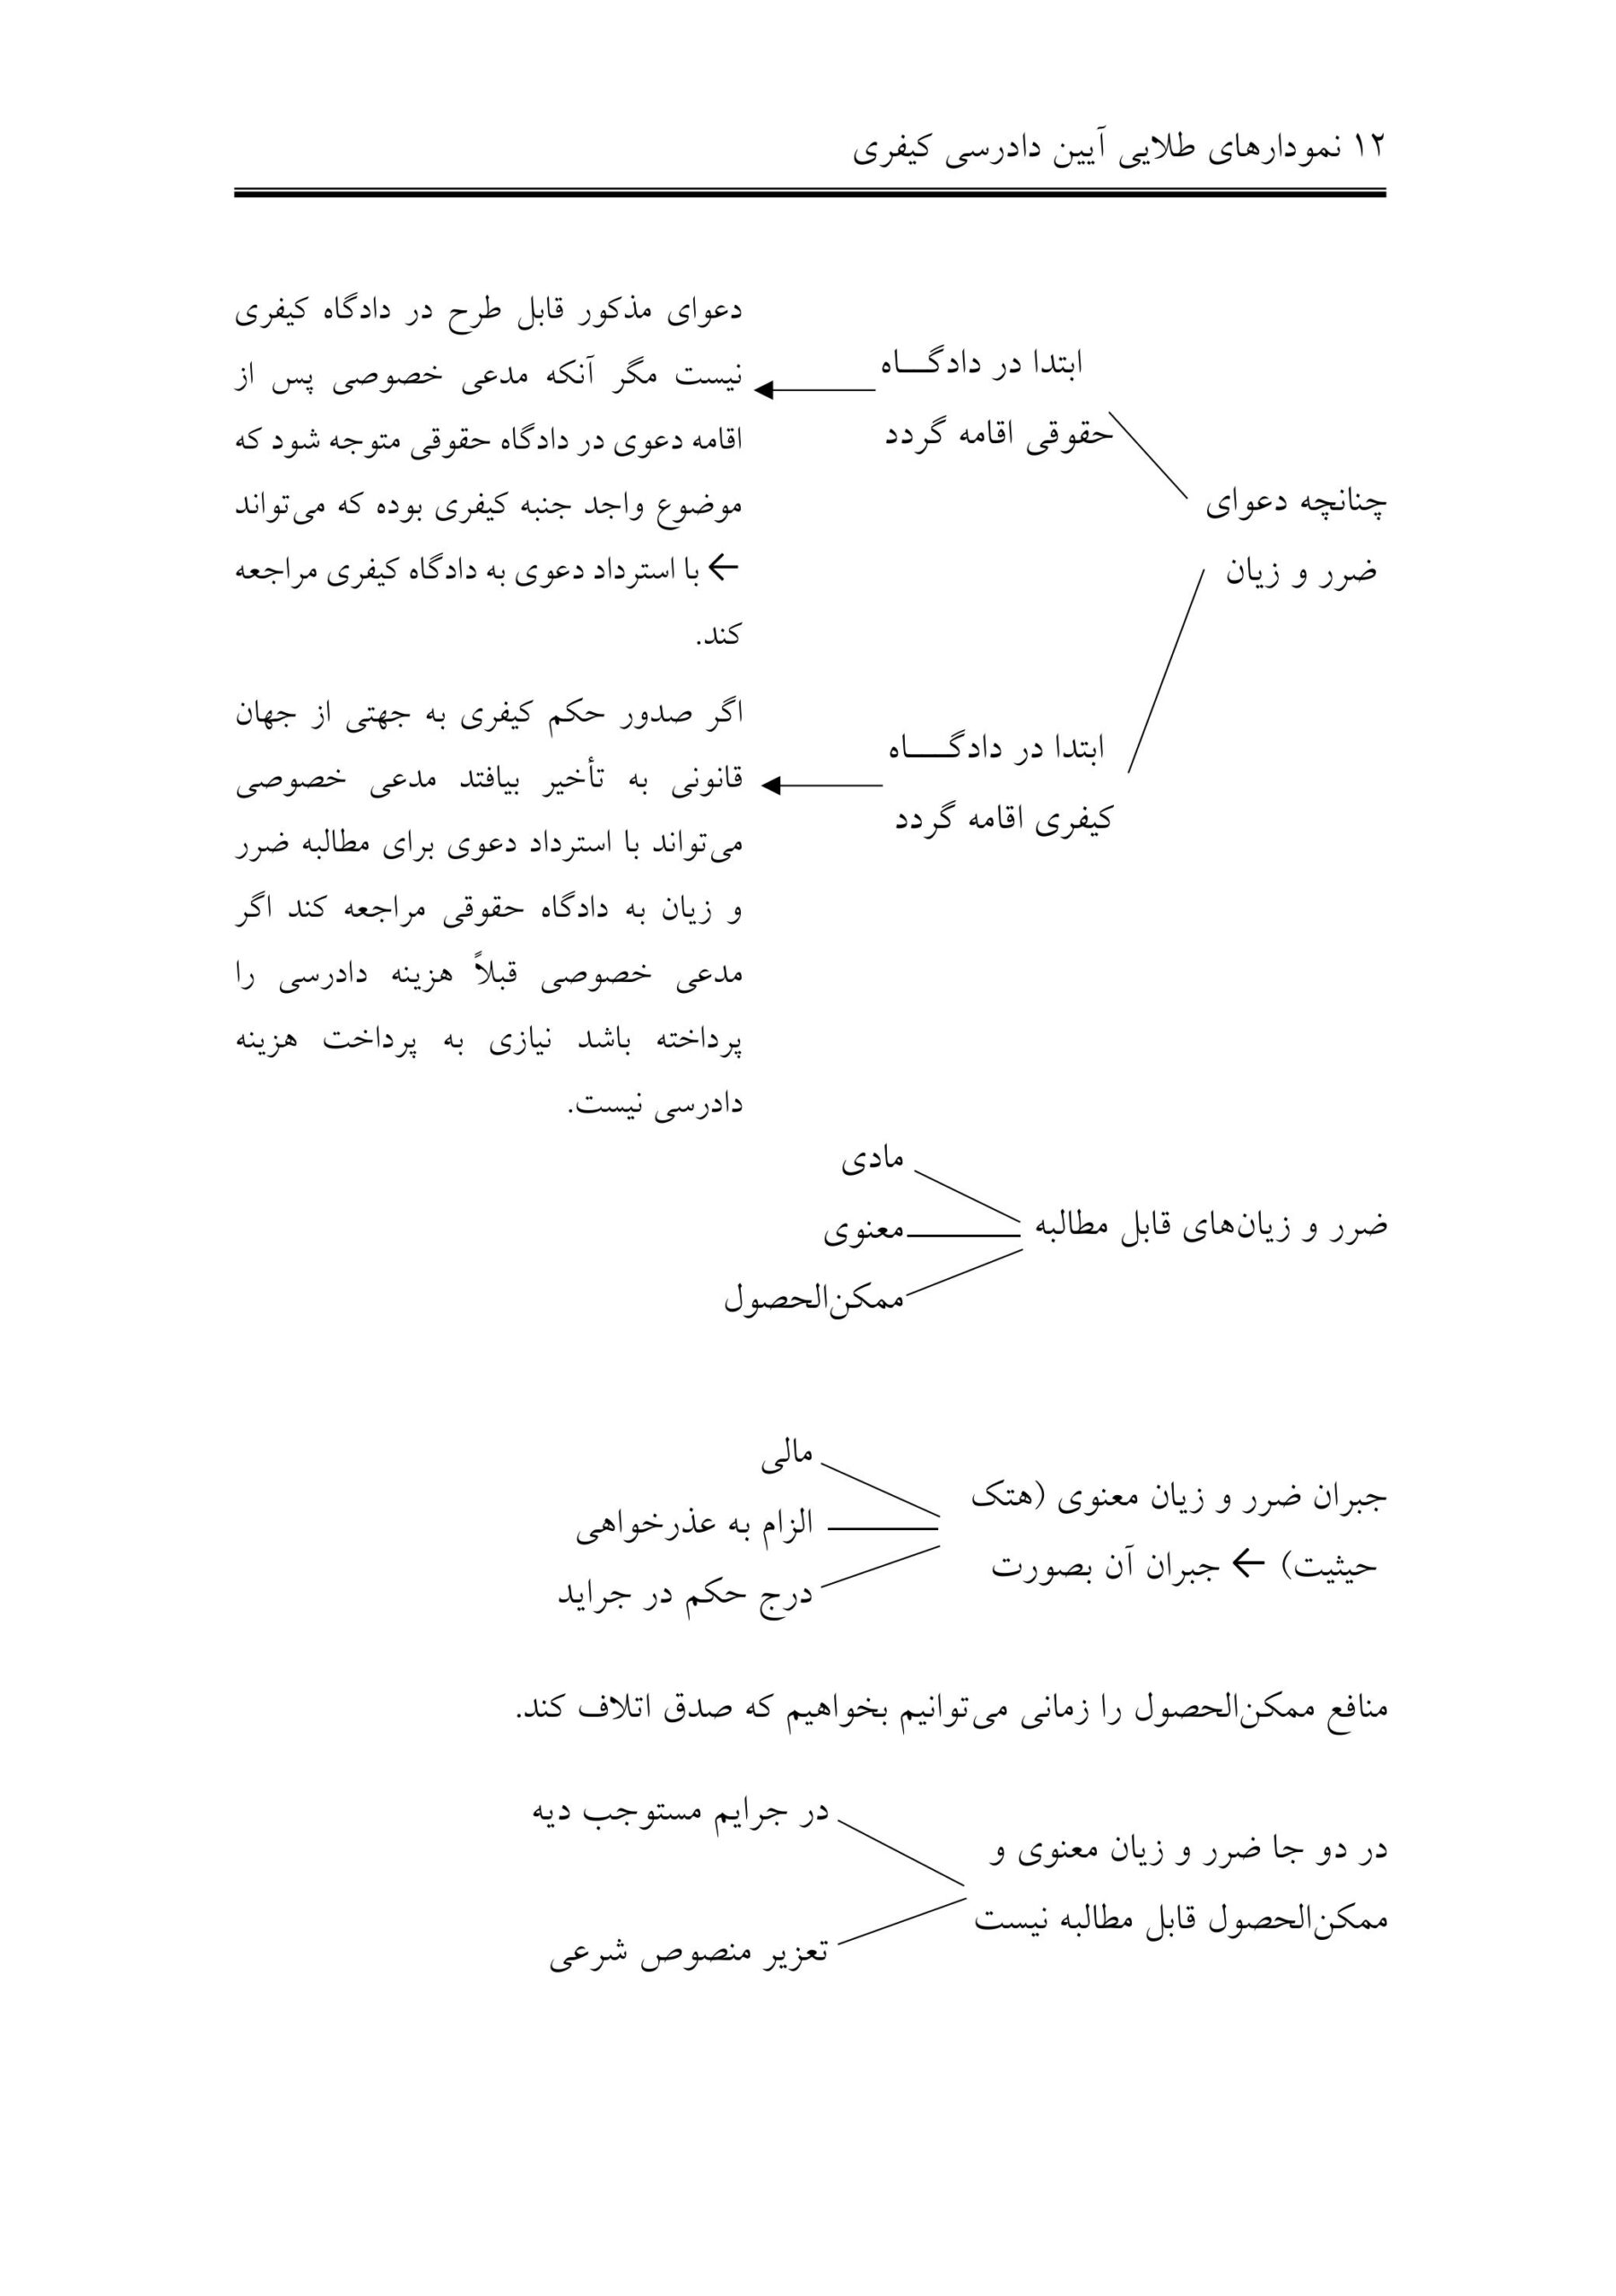 ۱۲ نمودارهای طلایی آیین دادرسی کیفری
چنانچه دعوای
ضرر و زیان
ابتدا در دادگـــاه
حقوقی اقامه گردد
دعوای مذکور قابل طرح در دادگاه کیفری
نیست مگر آنکه مدعی خصوصی پس از
اقامه دعوی در دادگاه حقوقی متوجه شود که
موضوع واجد جنبه کیفری بوده که می‌تواند
← با استرداد دعوی به دادگاه کیفری مراجعه
کند.
ابتدا در دادگـــــاه
کیفری اقامه گردد
اگر صدور حکم کیفری به جهتی از جهان
قانونی به تأخیر بیافتد مدعی خصوصی
می‌تواند با استرداد دعوی برای مطالبه ضرر
و زیان به دادگاه حقوقی مراجعه کند اگر
مدعی خصوصی قبلاً هزینه دادرسی را
پرداخته باشد نیازی به پرداخت هزینه
دادرسی نیست.
ضرر و زیان‌های قابل مطالبه
مادی
معنوی
ممکن‌الحصول
جبران ضرر و زیان معنوی (هتک
حیثیت) ← جبران آن بصورت
مالی
الزام به عذرخواهی
درج حکم در جراید
منافع ممکن‌الحصول را زمانی می‌توانیم بخواهیم که صدق اتلاف کند.
در دو جا ضرر و زیان معنوی و
ممکن‌الحصول قابل مطالبه نیست
در جرایم مستوجب دیه
تعزیر منصوص شرعی